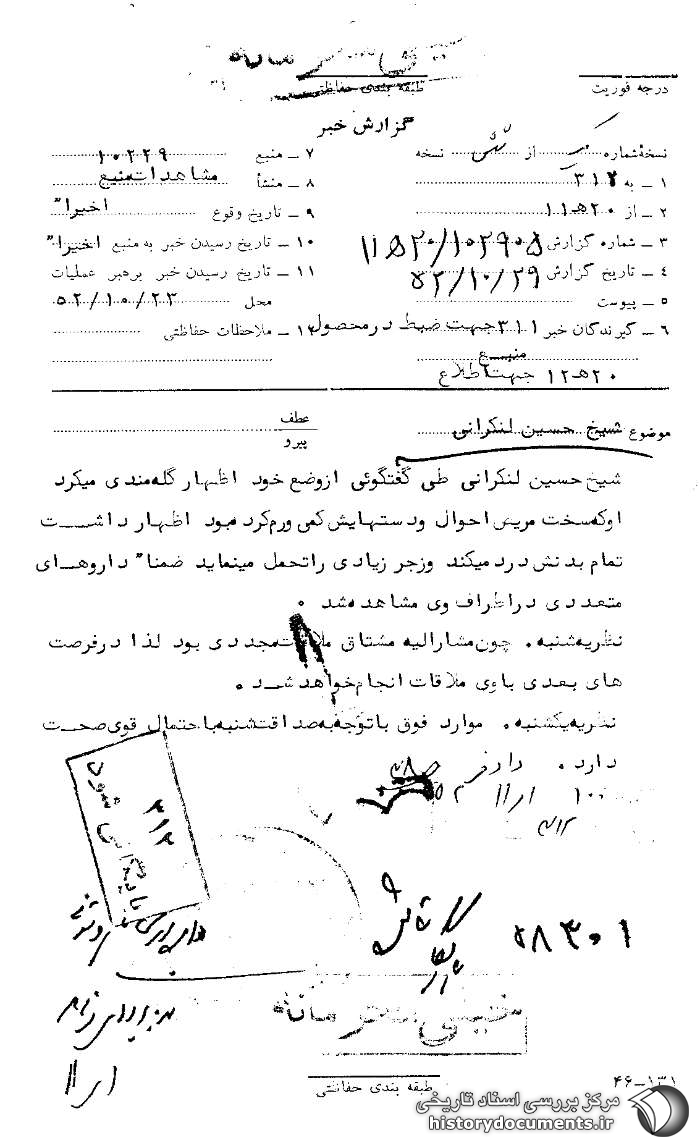 خیلی محرمانه
درجه فوریت
طبقه بندی حفاظتی
گزارش خبر
نسخهٔ شماره از شش نسخه
۱ ـ به ۳۱۲
۲ ـ از ۲۰هـ۱۱
۳ ـ شماره گزارش ۱۰۲۹۰۵/۲۰هـ۱۱
۴ ـ تاریخ گزارش ۵۲/۱۰/۲۹
۵ ـ پیوست
۶ ـ گیرندگان خبر ۳۱۱ جهت ضبط در محصول منبع
۲۰هـ۱۲ جهت اطلاع
۷ ـ منبع ۱۰۲۲۹
۸ ـ منشأ مشاهدات منبع
۹ ـ تاریخ وقوع اخیرا"
۱۰ ـ تاریخ رسیدن خبر به منبع اخیرا"
۱۱ ـ تاریخ رسیدن خبر برهبر عملیات
محل ۵۲/۱۰/۲۳
۱۲ ـ ملاحظات حفاظتی
موضوع شیخ حسین لنکرانی
عطف
پیرو
شیخ حسین لنکرانی طی گفتگوئی از وضع خود اظهار گله‌مندی میکرد
او که سخت مریض احوال و دستهایش کمی ورم کرده بود اظهار داشت
تمام بدنش درد میکند و زجر زیادی را تحمل مینماید ضمنا" داروهای
متعددی در اطراف وی مشاهده شد .
نظریه شنبه . چون مشارالیه مشتاق ملاقات مجددی بود لذا در فرصت
های بعدی با وی ملاقات انجام خواهد شد .
نظریه یکشنبه . موارد فوق با توجه به صداقت شنبه با احتمال قوی صحت
دارد .
۳۱۲
بایگانی شود
۵۸۳۰۱
خیلی محرمانه
طبقه بندی حفاظتی
۴۶-۱۳۱
مرکز بررسی اسناد تاریخی
historydocuments.ir